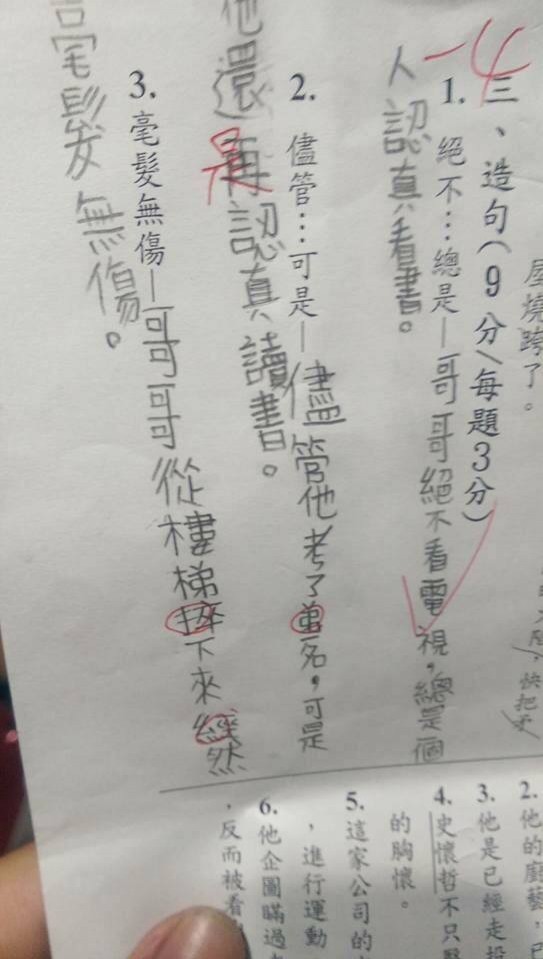 屋燒跨了。
快把
-4
三、造句(9分/每題3分)
1. 絕不…總是—哥哥絕不看電視,總是個
人認真看書。
2. 儘管…可是—儘管他考了弟一名,可是
他還再認真讀書。
是
3. 毫髮無傷—哥哥從樓梯摔下來經然
毫髮無傷。
2. 他的廚藝,
3. 他是已經走投
4. 史懷哲不只
的胸懷。
5. 這家公司的
,進行運動
6. 他企圖瞞過
,反而被看